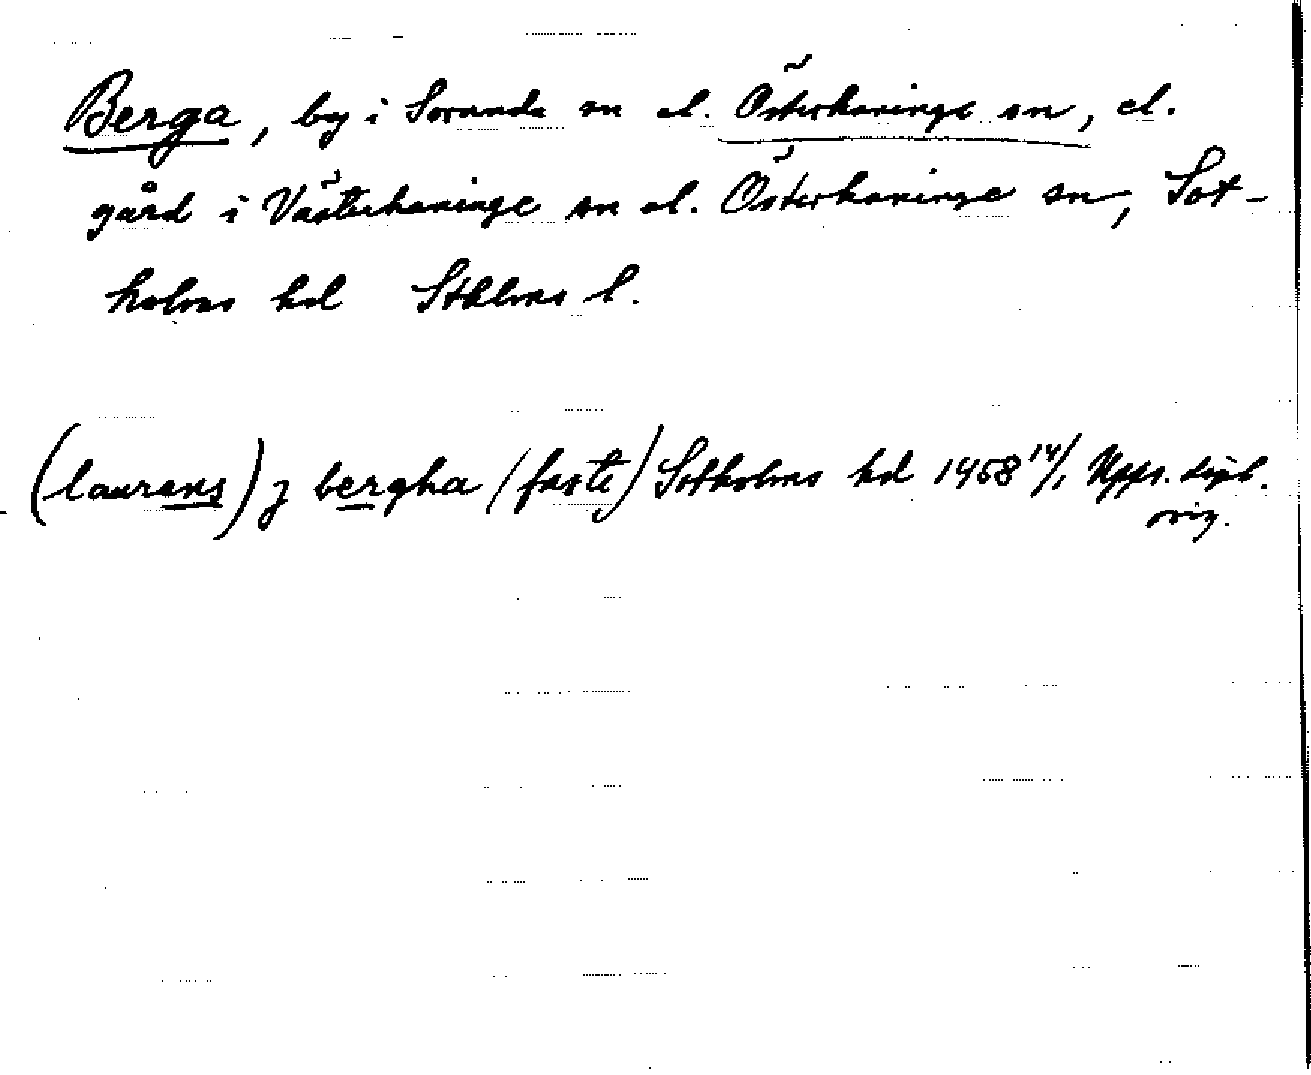 Berga, by i Sorunda sn el. Österhaninge sn, el.
gård i Västerhaninge sn el. Österhaninge sn, Sot-
holms hd Sthlms l.
(laurens) j bergha (faste) Sotholms hd 1468 14/1 Upps. dipl.
orig.